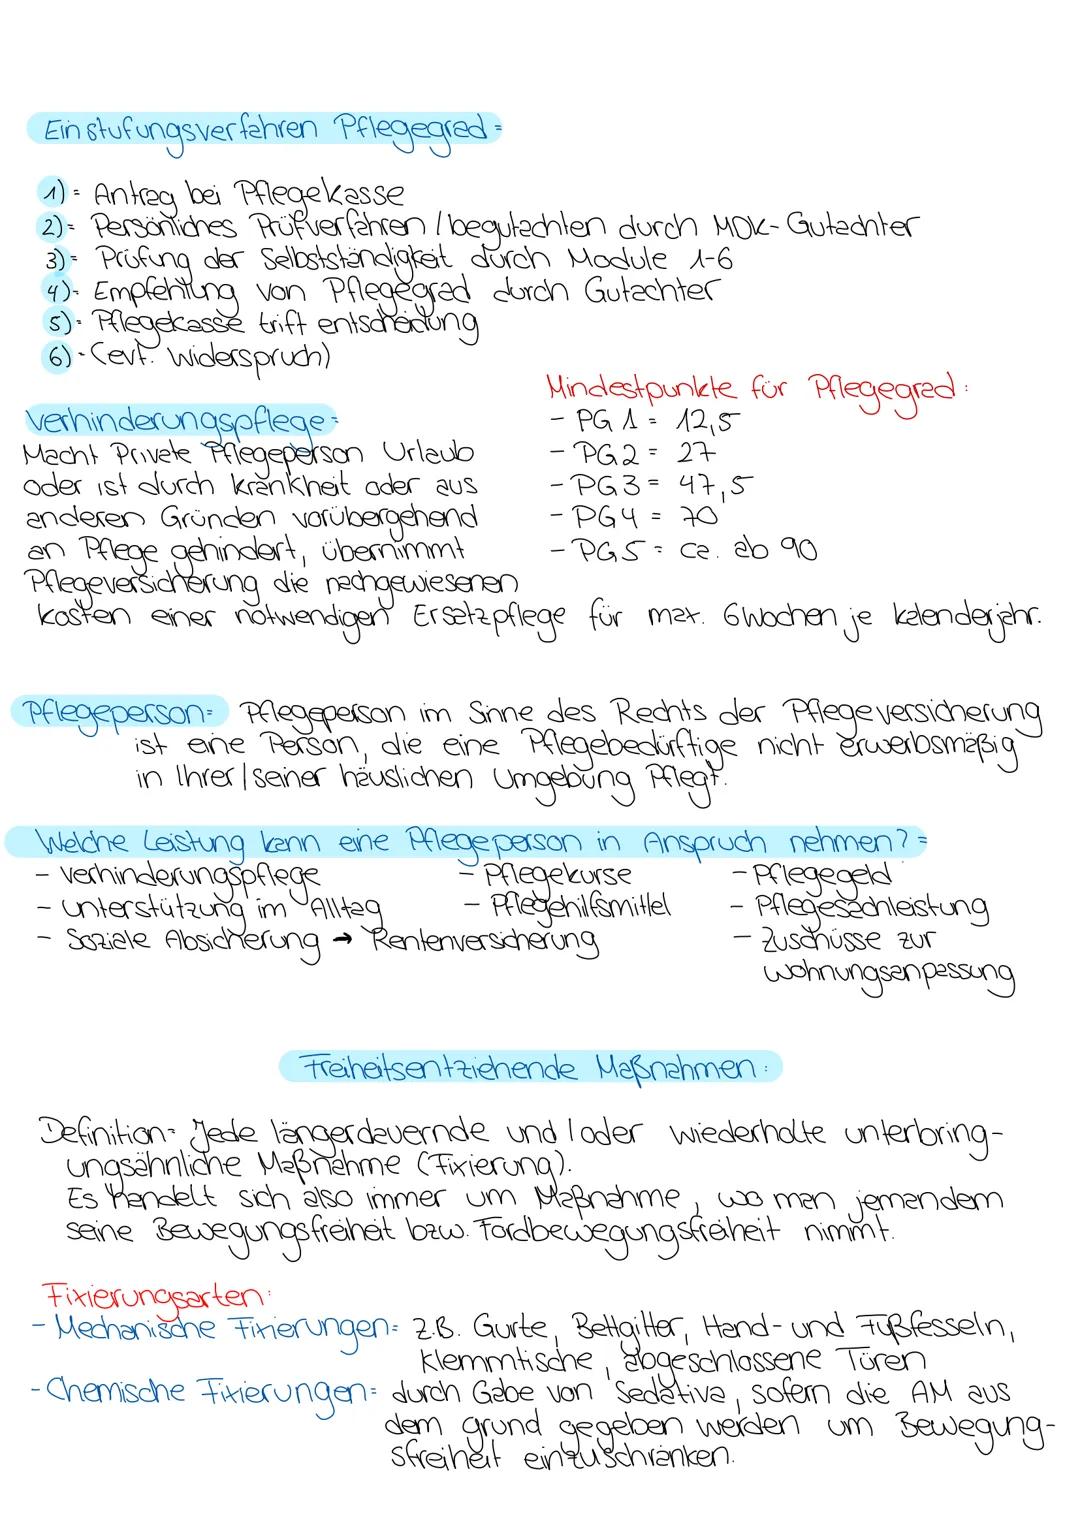 Einstufungsverfahren Pflegegrad =
1) = Antrag bei Pflegekasse
2) = Persönliches Prüfverfahren / begutachten durch MDK-Gutachter
3) = Prüfung der Selbstständigkeit durch Module 1-6
4) = Empfehlung von Pflegegrad durch Gutachter
5) = Pflegekasse trift entscheidung
6) = (evt. Widerspruch)
Mindestpunkte für Pflegegrad:
- PG 1 = 12,5
- PG 2 = 27
- PG 3 = 47,5
- PG 4 = 70
- PG 5 = ca. ab 90
Verhinderungspflege =
Macht Private Pflegeperson Urlaub
oder ist durch krankheit oder aus
anderen Gründen vorübergehend
an Pflege gehindert, übernimmt
Pflegeversicherung die nachgewiesenen
kosten einer notwendigen Ersatzpflege für max. 6 Wochen je kalenderjahr.
Pflegeperson = Pflegeperson im Sinne des Rechts der Pflegeversicherung
ist eine Person, die eine Pflegebedürftige nicht erwerbsmäßig
in Ihrer / seiner häuslichen Umgebung Pflegt.
Welche Leistung kann eine Pflegeperson in Anspruch nehmen? =
- Verhinderungspflege - Pflegekurse - Pflegegeld
- unterstützung im Alltag - Pflegehilfsmittel - Pflegesachleistung
- Soziale Absicherung → Rentenversicherung - Zuschüsse zur
Wohnungsanpassung
Freiheitsentziehende Maßnahmen:
Definition = Jede längerdauernde und / oder wiederholte unterbring-
ungsähnliche Maßnahme (Fixierung).
Es handelt sich also immer um Maßnahme, wo man jemandem
seine Bewegungsfreiheit bzw. Fordbewegungsfreiheit nimmt.
Fixierungsarten:
- Mechanische Fixierungen = z.B. Gurte, Bettgitter, Hand- und Fußfesseln,
Klemmtische, abgeschlossene Türen
- Chemische Fixierungen = durch Gabe von Sedativa, sofern die AM aus
dem grund gegeben werden um Bewegung-
sfreiheit einzuschränken.